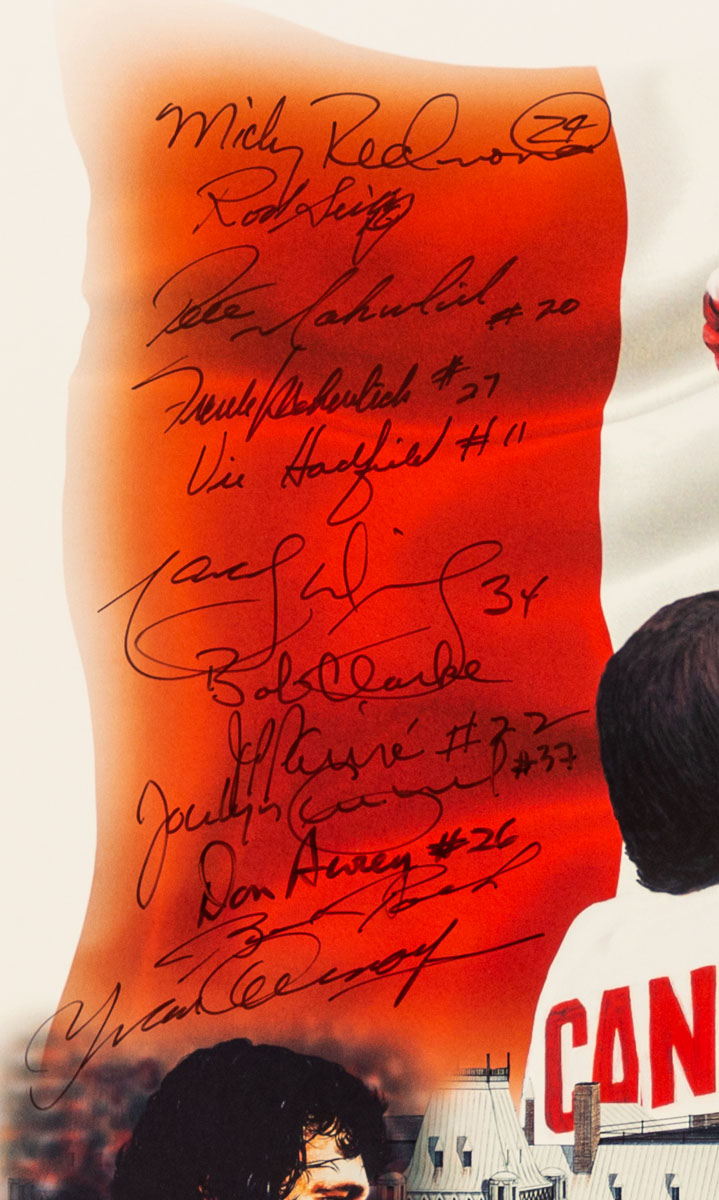 Micky Redmond 24
Rod Seiling
Pete Mahovlich #20
Frank Mahovlich #27
Vic Hadfield #11
34
Bob Clarke
JP Parisé #22
Jocelyn #37
Don Awrey #26
Yvan Cournoyer
CAN